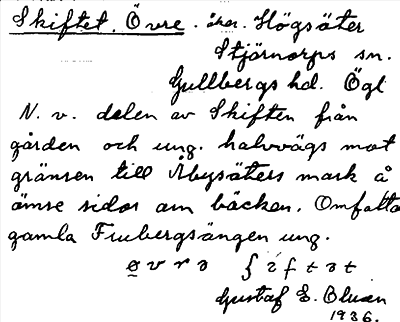 Skiftet, Övre. åker. Högsäter
Stjärnorps sn.
Gullbergs hd. Ögl
N. v. delen av Skiften från
gården och ung. halvvägs mot
gränsen till Åbysäters mark å
ömse sidor om bäcken. Omfatta
gamla Frubergsängen ung.
Gustaf E.
1936.